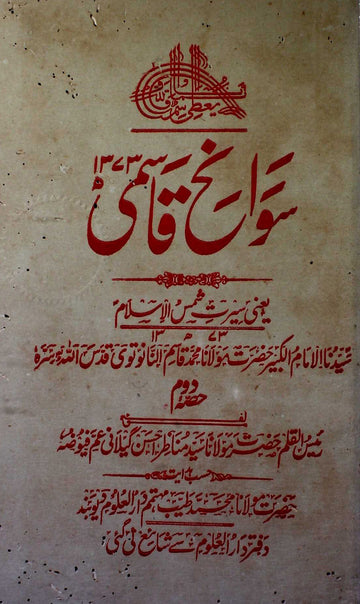 سوانح قاسمی ۱۳۷۳ھ
یعنی سیرتِ شمس الاسلام
۱۳۷۳ھ
سیدنا الامام الکبیر حضرت مولانا محمد قاسم النانوتوی قدس اللہ سرہ
حصہ دوم
بقلم
رئیس القلم حضرت مولانا سید مناظر احسن گیلانی عم فیوضہ
حسب ہدایت
حضرت مولانا محمد طیب مہتمم دار العلوم دیوبند
دفتر دار العلوم سے شائع کی گئی